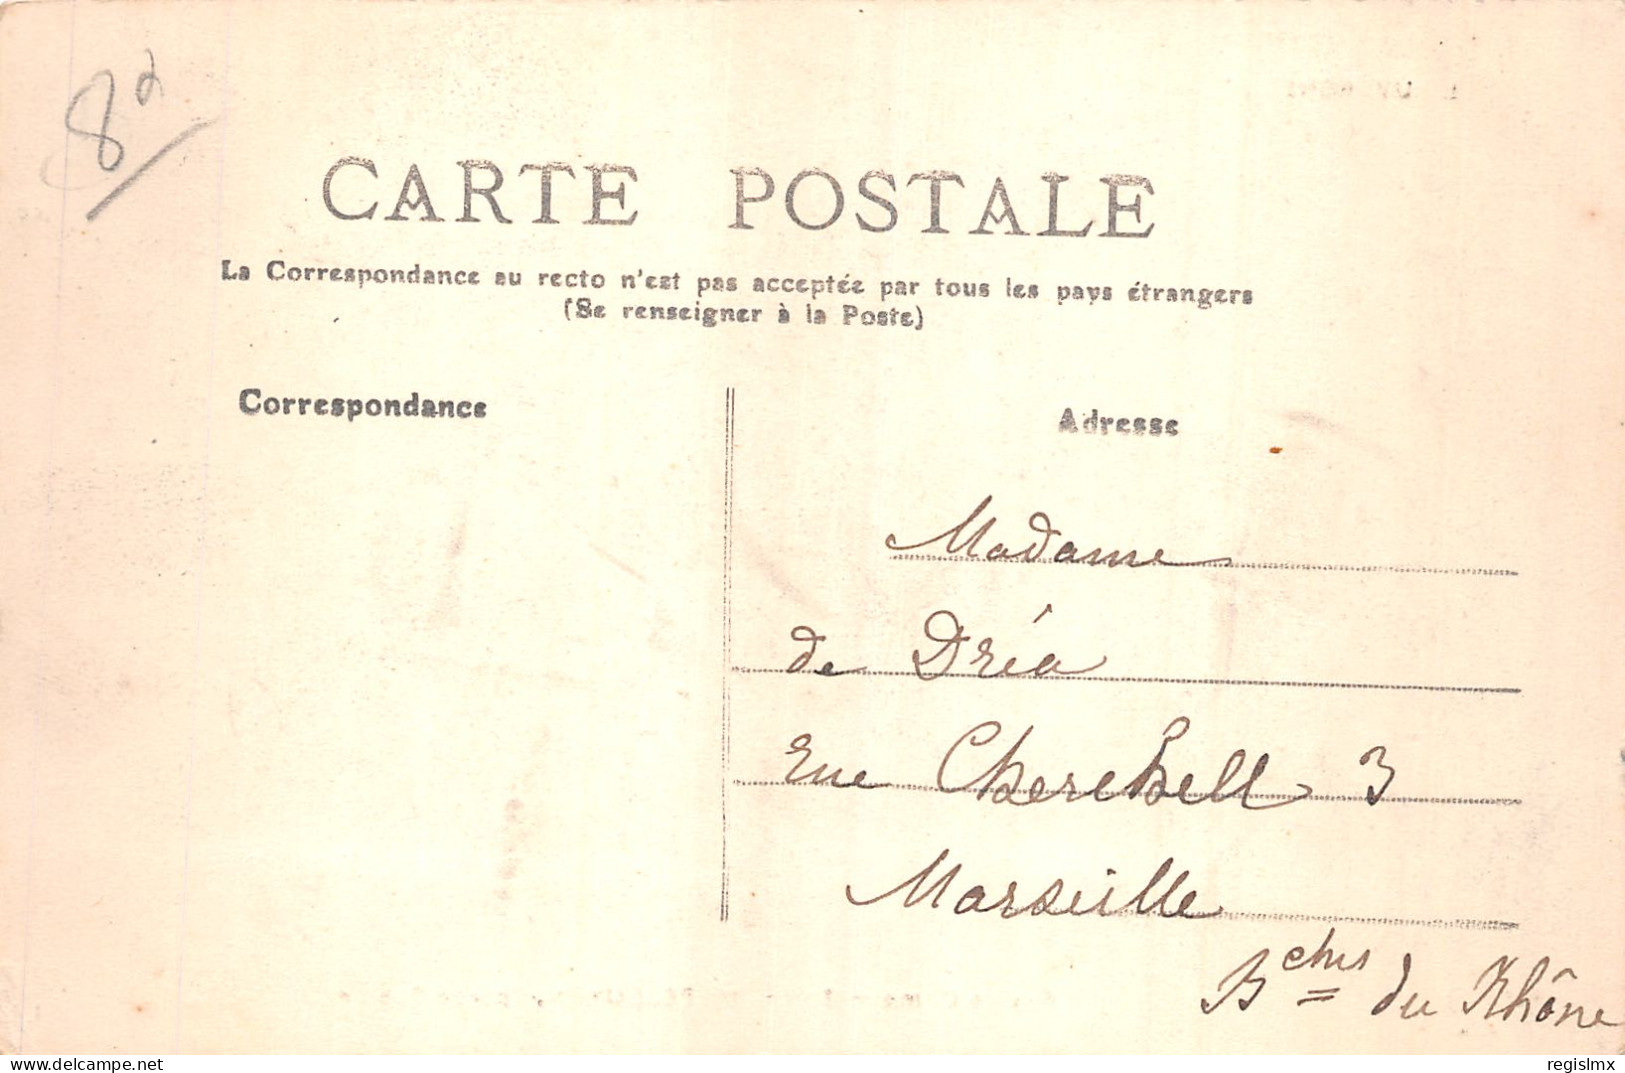 8d
CARTE POSTALE
La Correspondance au recto n'est pas acceptée par tous les pays étrangers
(Se renseigner à la Poste)
Correspondance
Adresse
Madame
de Dréa
rue Cherchell 3
Marseille
Bches du Rhône
delcampe.net
regislmx